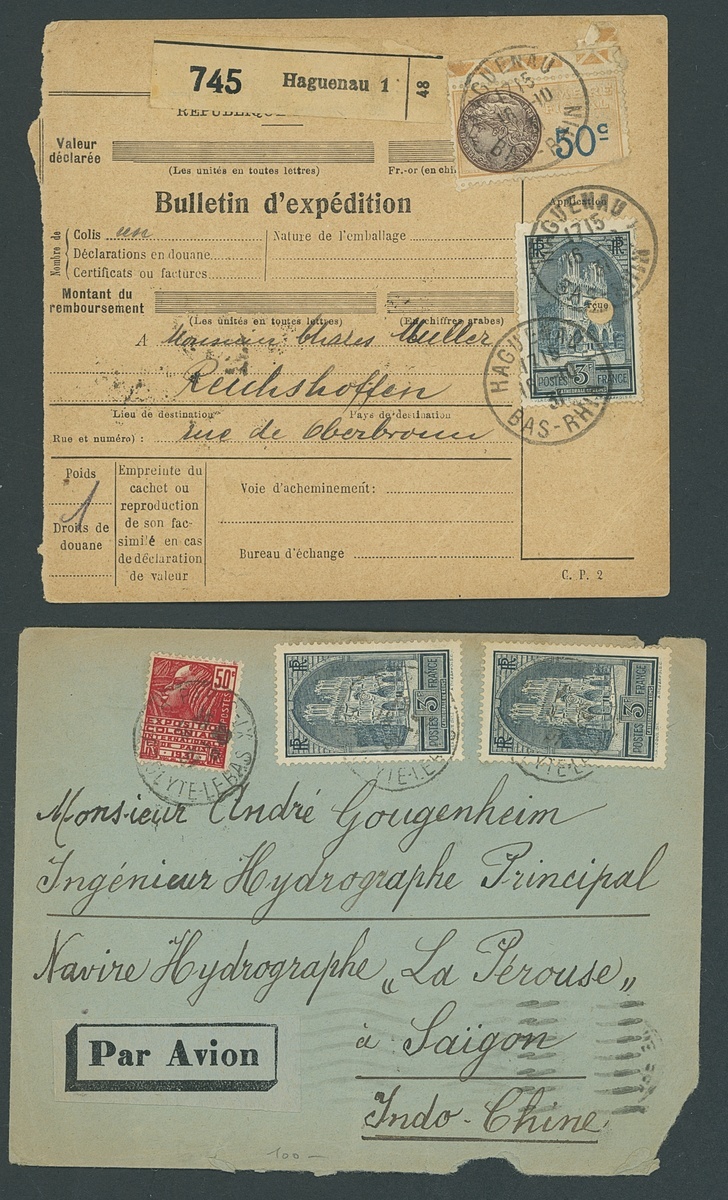 745 Haguenau 1 48
RÉPUBLIQUE
50c
Valeur déclarée
(Les unités en toutes lettres) Fr.-or (en chi
Bulletin d'expédition
Application
Nombre de
Colis un Nature de l'emballage
Déclarations en douane
Certificats ou factures
HAGUENAU
17 15
BAS-RHIN
Montant du remboursement
(Les unités en toutes lettres) (En chiffres arabes)
A Monsieur Charles Muller
Reichshoffen
POSTES 3F FRANCE
HAGUENAU
BAS-RHIN
Lieu de destination Pays de destination
Rue et numéro) : rue de Oberbronn
Poids
1
Droits de douane
Empreinte du
cachet ou
reproduction
de son fac-
similé en cas
de déclaration
de valeur
Voie d'acheminement:
Bureau d'échange
C. P. 2
50c
POSTES
EXPOSITION
COLONIALE
INTERNATIONALE
RF
RF POSTES 3F FRANCE
RF POSTES 3F FRANCE
Monsieur André Gougenheim
Ingénieur Hydrographe Principal
Navire Hydrographe „La Pérouse„
à Saïgon
Par Avion
Indo-Chine.
100—